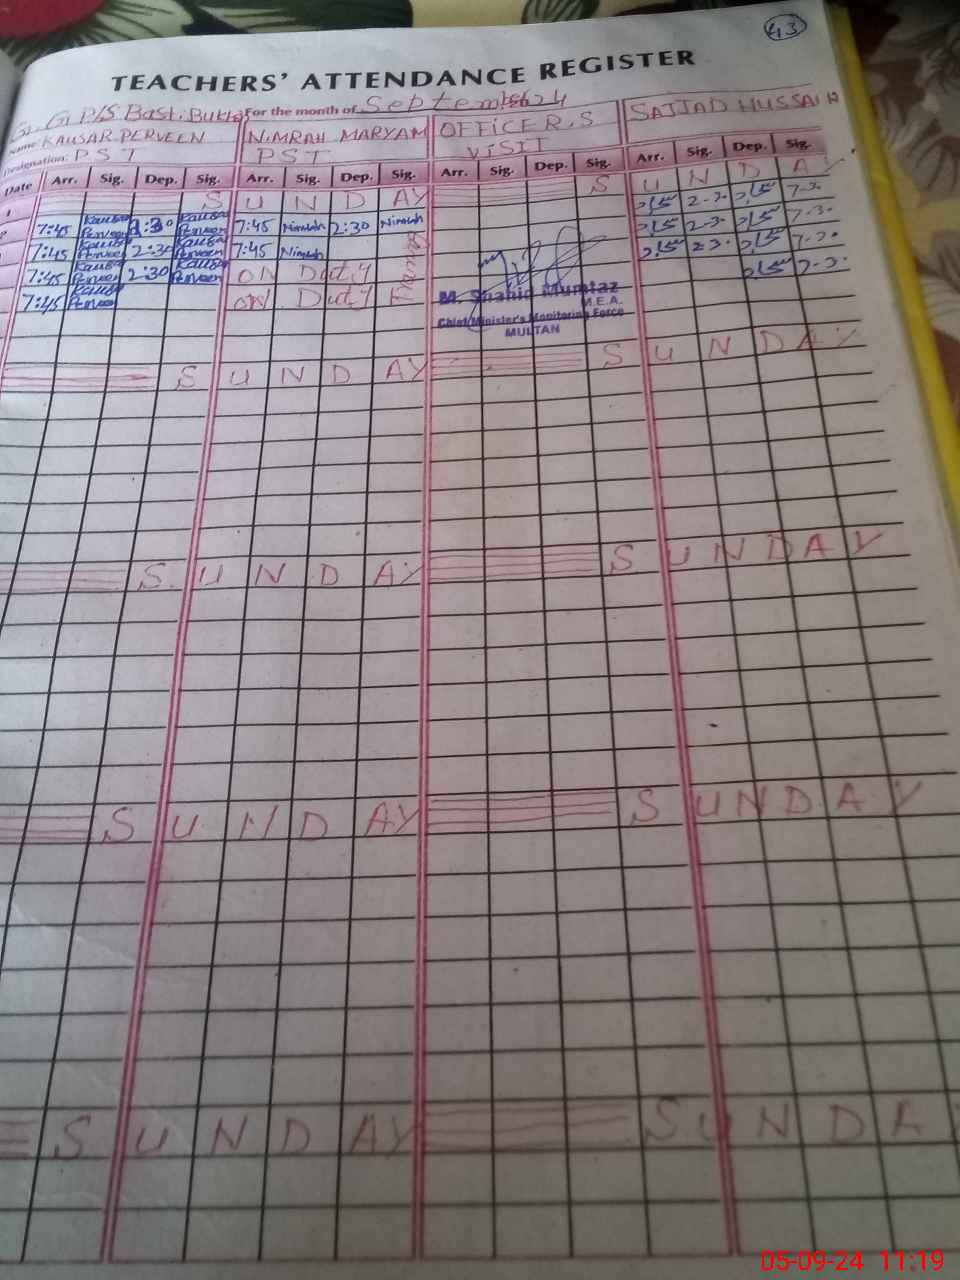 43
TEACHERS' ATTENDANCE REGISTER
G. G P/S Basti For the month of September 24
Name: KAUSAR PERVEEN NIMRAH MARYAM OFFICER,S SAJJAD HUSSAIN
Designation: PST PST VISIT
Date Arr. Sig. Dep. Sig. Arr. Sig. Dep. Sig. Arr. Sig. Dep. Sig. Arr. Sig. Dep. Sig.
1 S U N D AY S U N D A Y
7:45 Kausar Perveen 2:30 Kausar Perveen 7:45 Nimrah 2:30 Nimrah
7:45 Kausar Perveen 2:30 Kausar Perveen 7:45 Nimrah
7:45 Kausar Perveen 2:30 Kausar Perveen ON Duty
7:45 Kausar Perveen ON Duty
M. Shahid Mumtaz
M.E.A.
Chief Minister's Monitoring Force
MULTAN
S U N D AY S U N D A Y
S U N D AY S U N D A Y
S U N D AY S U N D A Y
S U N D AY S U N D A
05-09-24 11:19